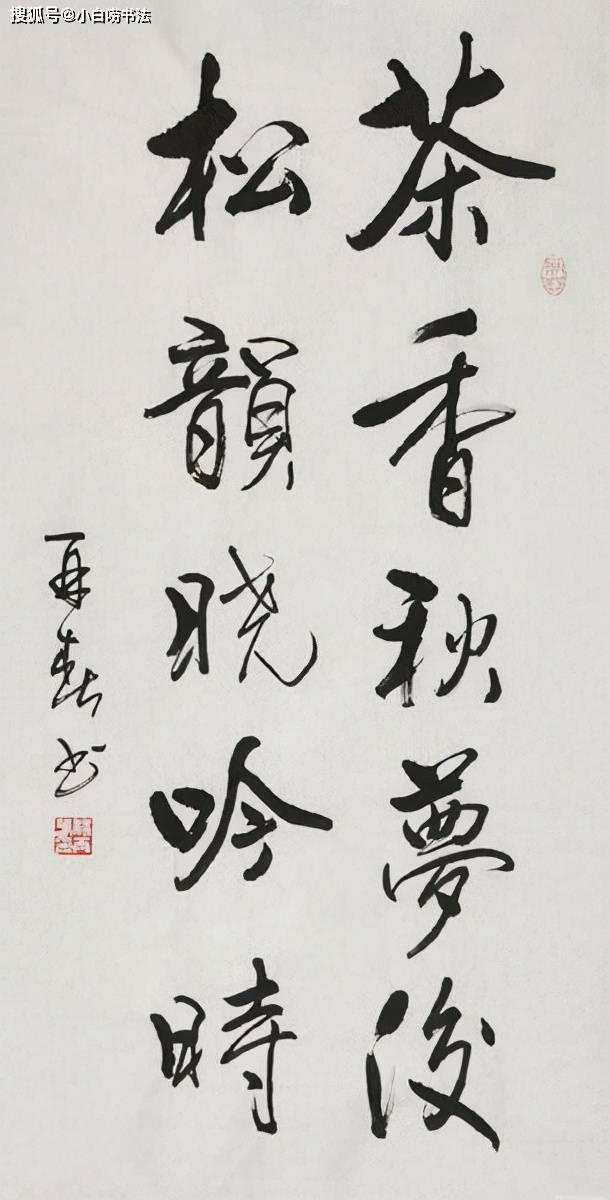 搜狐号@小白唠书法
茶香秋梦後
松韻晓吟時
再春书